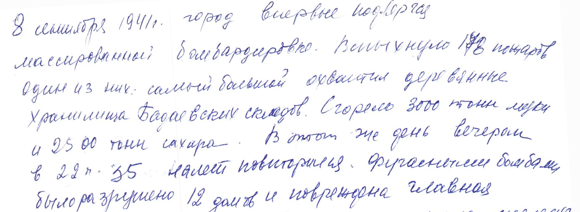 8 сентября 1941г. город впервые подвергся
массированной бомбардировке. Вспыхнуло 178 пожаров
один из них. самый большой охватил деревянные
хранилища Бадаевских складов. Сгорело 3000 тонн муки
и 2500 тонн сахара. В этот же день вечером
в 22ч. 35 налет повторился. Фугасными бомбами
было разрушено 12 домов и повреждена главная